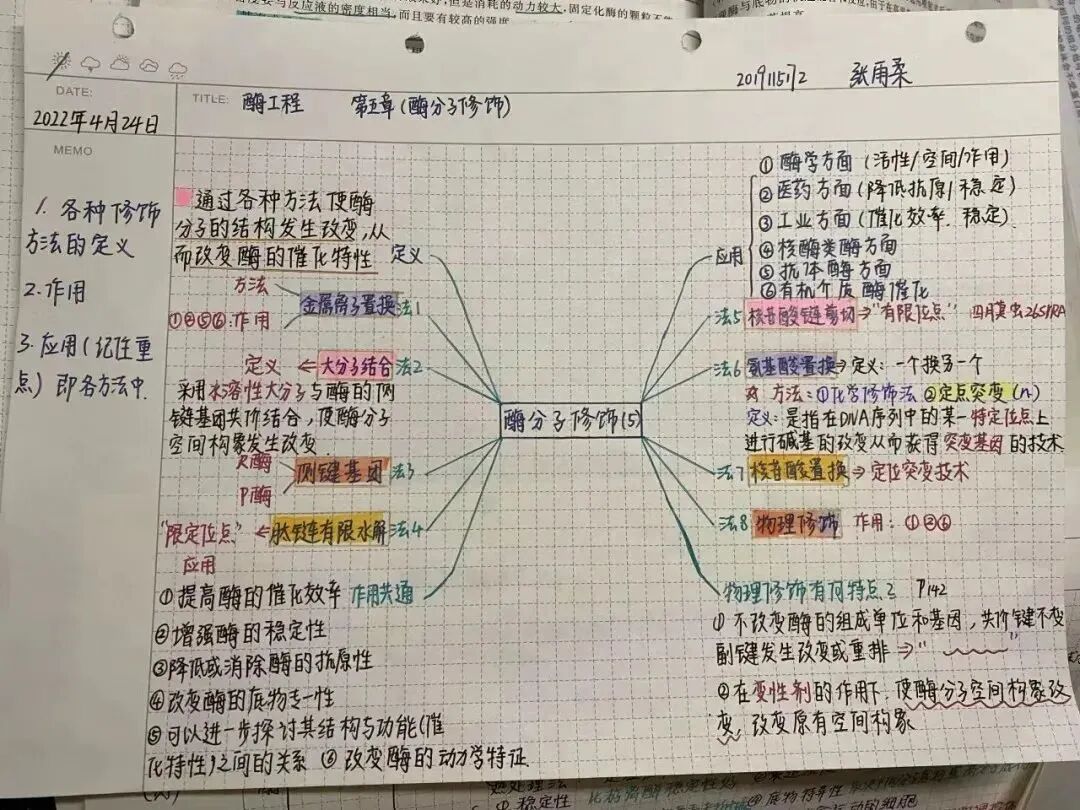 与反应液的密度相当，而且要有较高的强度
但是消耗的动力较大，固定化酶的颗粒不
2019115172 张雨柔
DATE:
2022年4月24日
TITLE: 酶工程 第五章(酶分子修饰)
MEMO
1. 各种修饰
方法的定义
2. 作用
3. 应用(纪性重
点) 即各方法中.
通过各种方法使酶
分子的结构发生改变,从
而改变酶的催化特性 定义
方法
金属离子置换 法1
①④⑤⑥:作用
定义 ← 大分子结合 法2
采用水溶性大分子与酶的侧
键基团共价结合,使酶分子
空间构象发生改变.
侧键基团 法3
P酶
"限定位点" ← 肽链有限水解 法4
应用
①提高酶的催化效率 作用共通
②增强酶的稳定性
③降低或消除酶的抗原性
④改变酶的底物专一性
⑤可以进一步探讨其结构与功能(催
化特性)之间的关系 ⑥改变酶的动力学特征
酶分子修饰(5)
应用
①酶学方面 (活性/空间/作用)
②医药方面(降低抗原/稳定)
③工业方面(催化效率.稳定)
④核酶类酶方面
⑤抗体酶方面
⑥有机介质酶催化
法5 核苷酸链剪切 ⇒ "有限位点" 四膜虫26SrRA
法6 氨基酸置换 ⇒ 定义: 一个换另一个
方法: ①化学修饰法 ②定点突变(n)
定义: 是指在DNA序列中的某一特定位点上
进行碱基的改变从而获得突变基因的技术
法7 核苷酸置换 ⇒ 定位突变技术
法8 物理修饰 作用: ①②⑥
物理修饰有何特点? P142
① 不改变酶的组成单位和基团,共价键不变
副键发生改变或重排 ⇒ " "
②在变性剂的作用下,使酶分子空间构象改
变,改变原有空间构象
稳定性
底物特异性